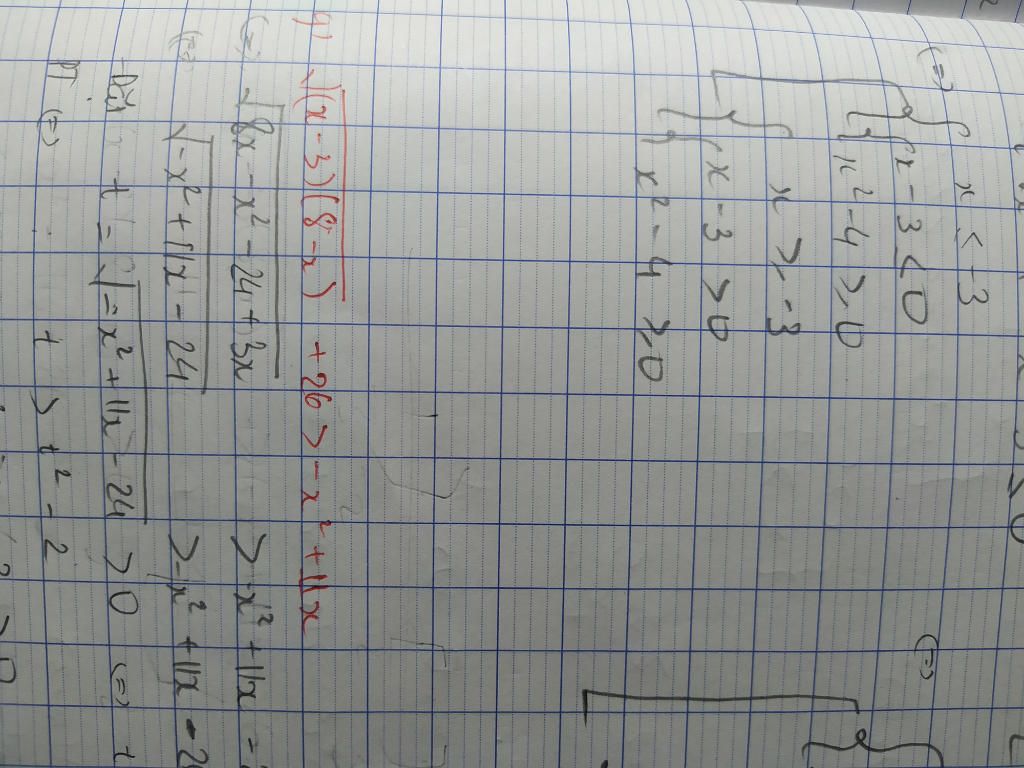 (=)
x ≤ -3
x - 3 < 0
x² - 4 ≥ 0
x ≥ -3
x - 3 > 0
x² - 4 ≥ 0
(=)
4) √((x - 3)(8 - x)) + 26 > - x² + 11x
(=) √(8x - x² - 24 + 3x) > - x² + 11x -
(=) √(-x² + 11x - 24) > -x² + 11x - 2
Đặt t = √(-x² + 11x - 24) > 0 (=) t
PT (=) t > t² - 2